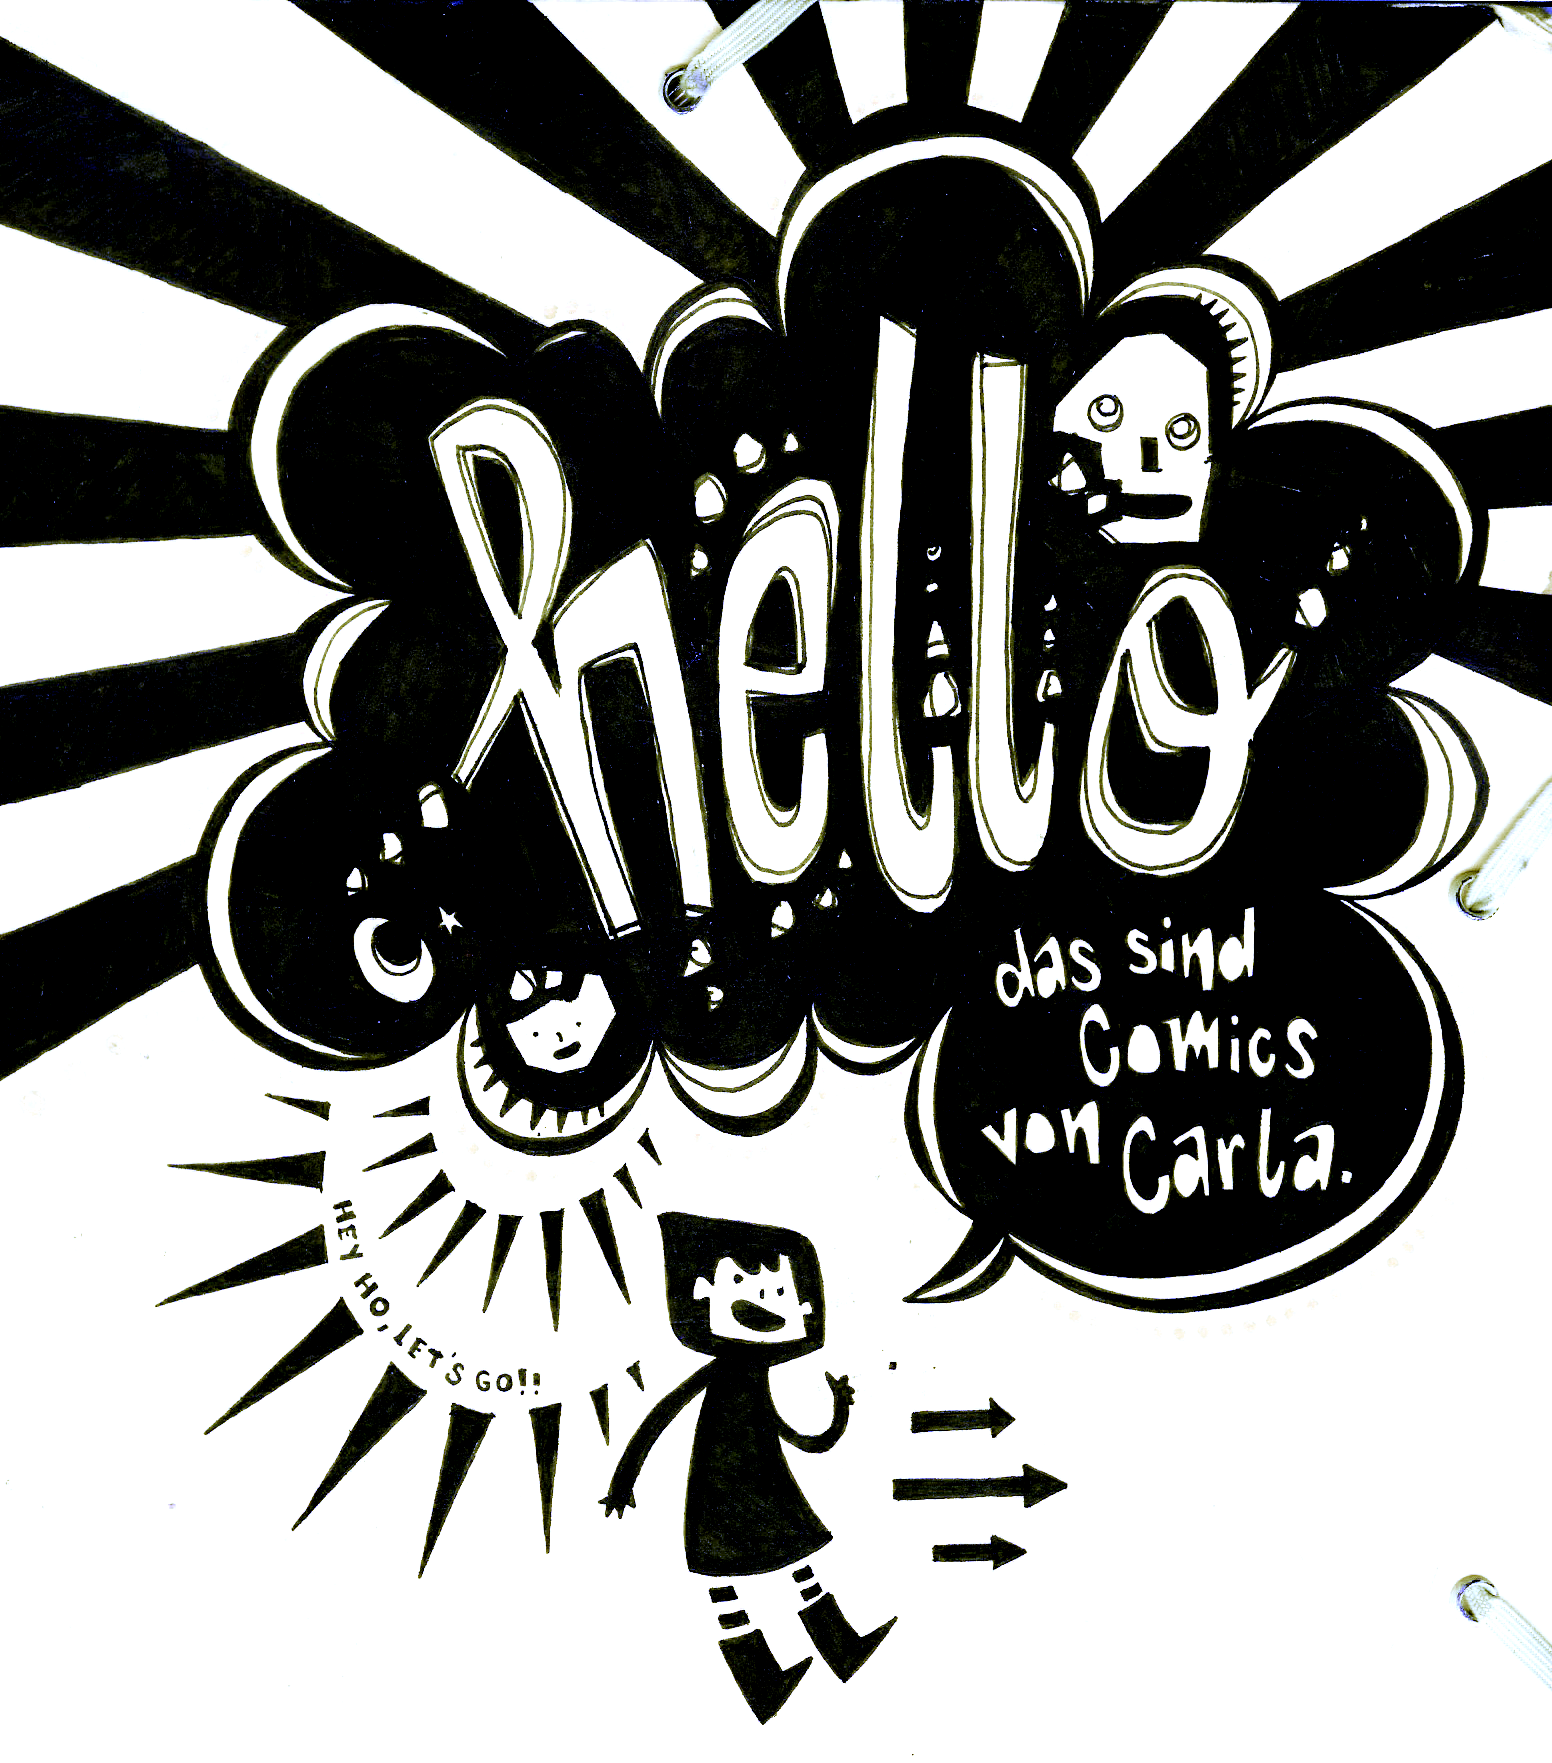 hello
das sind
Comics
von Carla.
HEY HO, LET'S GO!!